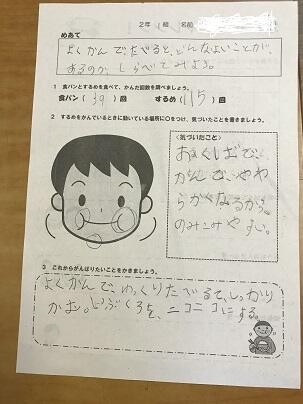 2年 組 名前
めあて
よくかんで、たべると、どんなよいことが、
あるのか、しらべてみよう。
1 食パンとするめを食べて、かんだ回数を調べましょう。
食パン( 39 )回 するめ( 115 )回
2 するめをかんでいるときに動いている場所に〇をつけ、気づいたことを書きましょう。
<気づいたこと>
おおくしばで、
かんで、やわ
らかくなるから。
のみこみやすい。
3 これからがんばりたいことをかきましょう。
よくかんで、ゆっくりたべるて、しっかり
かむ。いぶくろを、ニコニコにする。